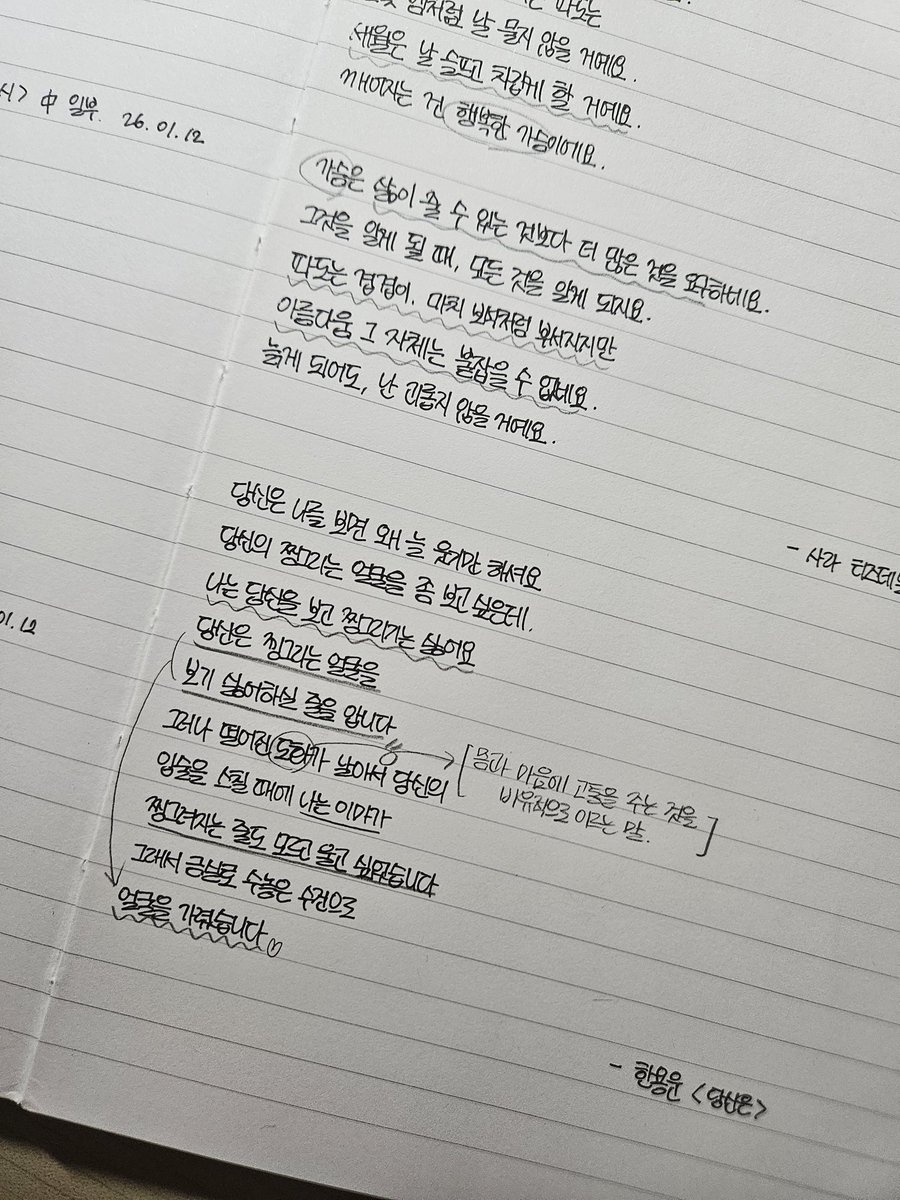 시> 中 일부. 26.01.12
01.12
파도는
처럼 날 물지 않을 거예요.
세월은 날 슬프고 차갑게 할 거예요.
깨어지는 건 행복한 가슴이에요.
가슴은 삶이 줄 수 있는 것보다 더 많은 것을 요구하네요.
그것을 알게 될 때, 모든 것을 알게 되지요.
파도는 겹겹이. 마치 보석처럼 부서지지만
아름다움 그 자체는 붙잡을 수 없네요.
늙게 되어도, 난 괴롭지 않을 거예요.
- 사라 티즈데일
당신은 나를 보면 왜 늘 웃기만 해셔요
당신의 찡그리는 얼굴을 좀 보고 싶은데.
나는 당신을 보고 찡그리기는 싫어요
당신은 찡그리는 얼굴을
보기 싫어하실 줄을 압니다
그러나 떨어진 도화가 날아서 당신의
입술을 스칠 때에 나는 이마가
찡그려지는 줄도 모르고 울고 싶었습니다
그래서 금실로 수놓은 수건으로
얼굴을 가렸습니다
[몸과 마음에 고통을 주는 것을
비유적으로 이르는 말.]
- 한용운 <당신은>